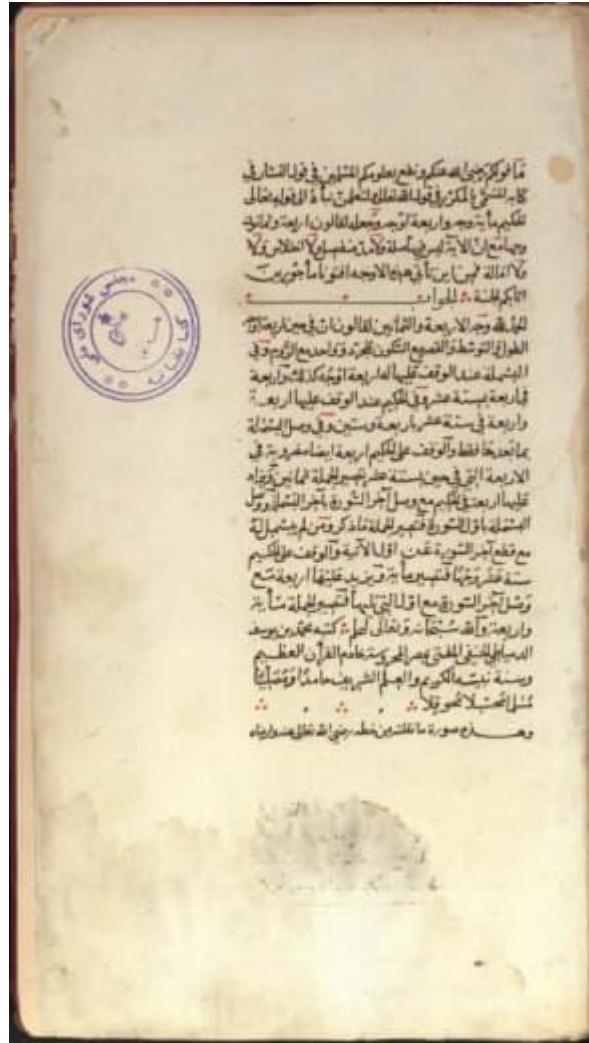 ما قولكم رضي الله عنكم ونفع بعلومكم المسلمين في قول النشار في
كتابه المسمى بالمكرر في قوله تعالى لتعلمن نبأه الى قوله تعالى
الحكيم مأية وجه واربعة اوجه وجعله لقالون اربعة وثمانون
وجها مع ان الآية ليس فيها صلة ولا مد منفصل ولا
ولا امالة فمن اين تأتي هذه الاوجه افتونا مأجورين
اثابكم الجنة الجواب
الحمد لله وجه الاربعة والثمانين لقالون ان في حين اربعة اوجه
الطول والتوسط والقصر مع السكون المجرد وواحد مع الروم وفي
البسملة عند الوقف عليها اربعة اوجه كذلك واربعة
في اربعة بستة عشر وفي الحكيم عند الوقف عليها اربعة
واربعة في ستة عشر باربعة وستين وفي وصل البسملة
بما بعدها فقط والوقف على الحكيم اربعة ايضا مضروبة في
الاربعة التي في حين بستة عشر تصير الجملة ثمانين
عليها اربعة في الحكيم مع وصل آخر السورة بآخر البسملة ووصل
البسملة باول السورة فتصير الجملة ما ذكر ومن لم يبسمل له
مع قطع آخر السورة عن اول الآتية والوقف على الحكيم
ستة عشر وجها فتصير مأية ويزيد عليها اربعة مع
وصل آخر السورة مع اول التي تليها فتصير الجملة مأية
واربعة والله سبحانه وتعالى اعلم كتبه محمد بن يوسف
الدمياطي الحنفي المفتي بمصر المحروسة خادم القرآن العظيم
وسنة نبيه الكريم والعلم الشريف حامدا ومصليا
مسلما محسبلا محوقلا
وهذه صورة ما نقلته من خطه رضي الله تعالى عنه وارضاه
كتابخانه مجلس شورای ملی